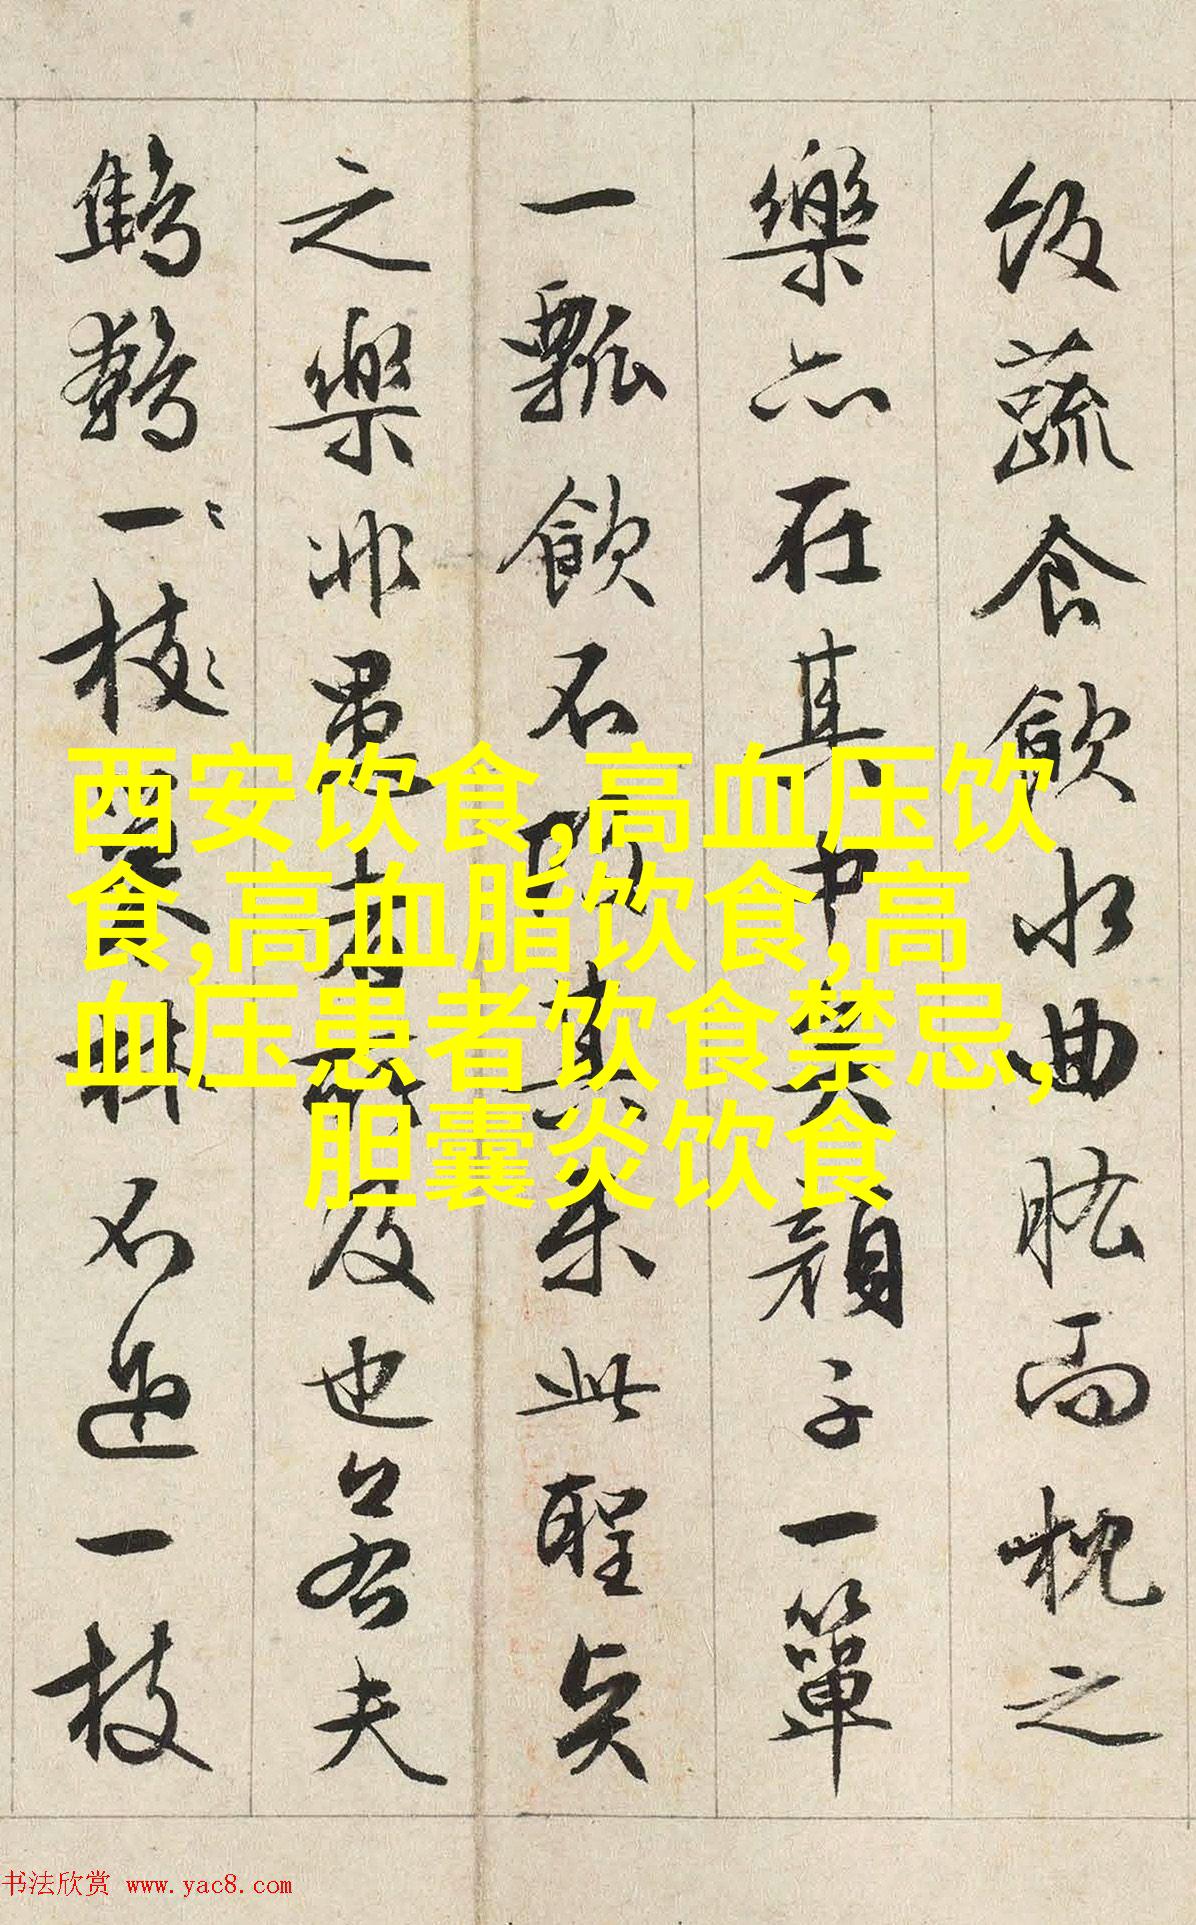 飯蔬食飲水曲肱而枕之
樂亦在其中矣顏子一簞
一瓢飲不改其樂此聖賢
之樂非愚者所及也若夫
鷦鷯一枝巢林不過一枝
西安饮食,高血压饮
食,高血脂饮食,高
血压患者饮食禁忌,
胆囊炎饮食
书法欣赏 www.yac8.com